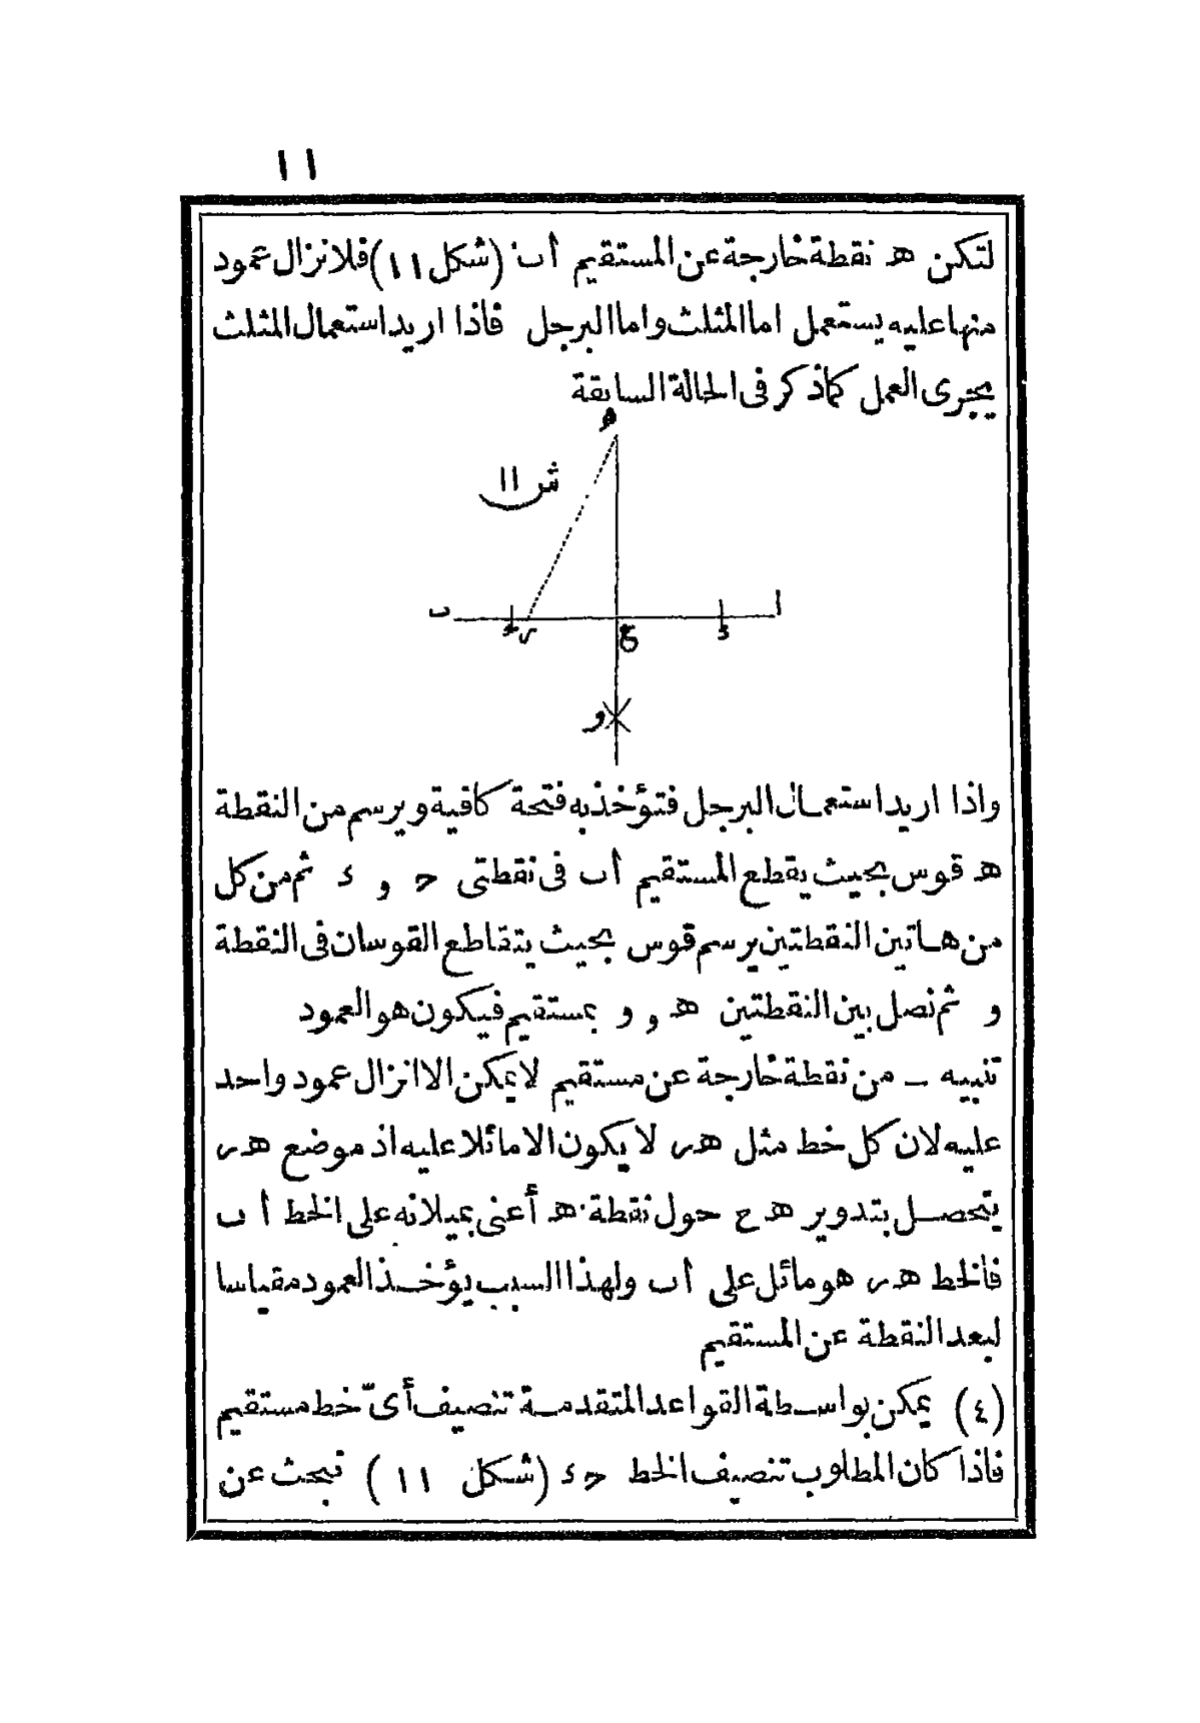 ١١
لتكن هـ نقطة خارجة عن المستقيم أ ب (شكل ١١) فلانزال عمود
منها عليه يستعمل اما المثلث واما البرجل فاذا اريد استعمال المثلث
يجرى العمل كما ذكر فى الحالة السابقة
هـ
ش ١١
ب ر ع د ا
و
واذا اريد استعمال البرجل فتؤخذ به فتحة كافية ويرسم من النقطة
هـ قوس بحيث يقطع المستقيم أ ب فى نقطتى حـ و د ثم من كل
من هاتين النقطتين يرسم قوس بحيث يتقاطع القوسان فى النقطة
و ثم نصل بين النقطتين هـ و و بمستقيم فيكون هو العمود
تنبيه ــ من نقطة خارجة عن مستقيم لا يمكن الا انزال عمود واحد
عليه لان كل خط مثل هـ ر لا يكون الا مائلا عليه اذ موضع هـ ر
يتحصل بتدوير هـ ع حول نقطة هـ أعنى بميلانه على الخط أ ب
فالخط هـ ر هو مائل على أ ب ولهذا السبب يؤخذ العمود مقياسا
لبعد النقطة عن المستقيم
(٤) يمكن بواسطة القواعد المتقدمة تنصيف أىّ خط مستقيم
فاذا كان المطلوب تنصيف الخط حـ د (شكل ١١) نبحث عن